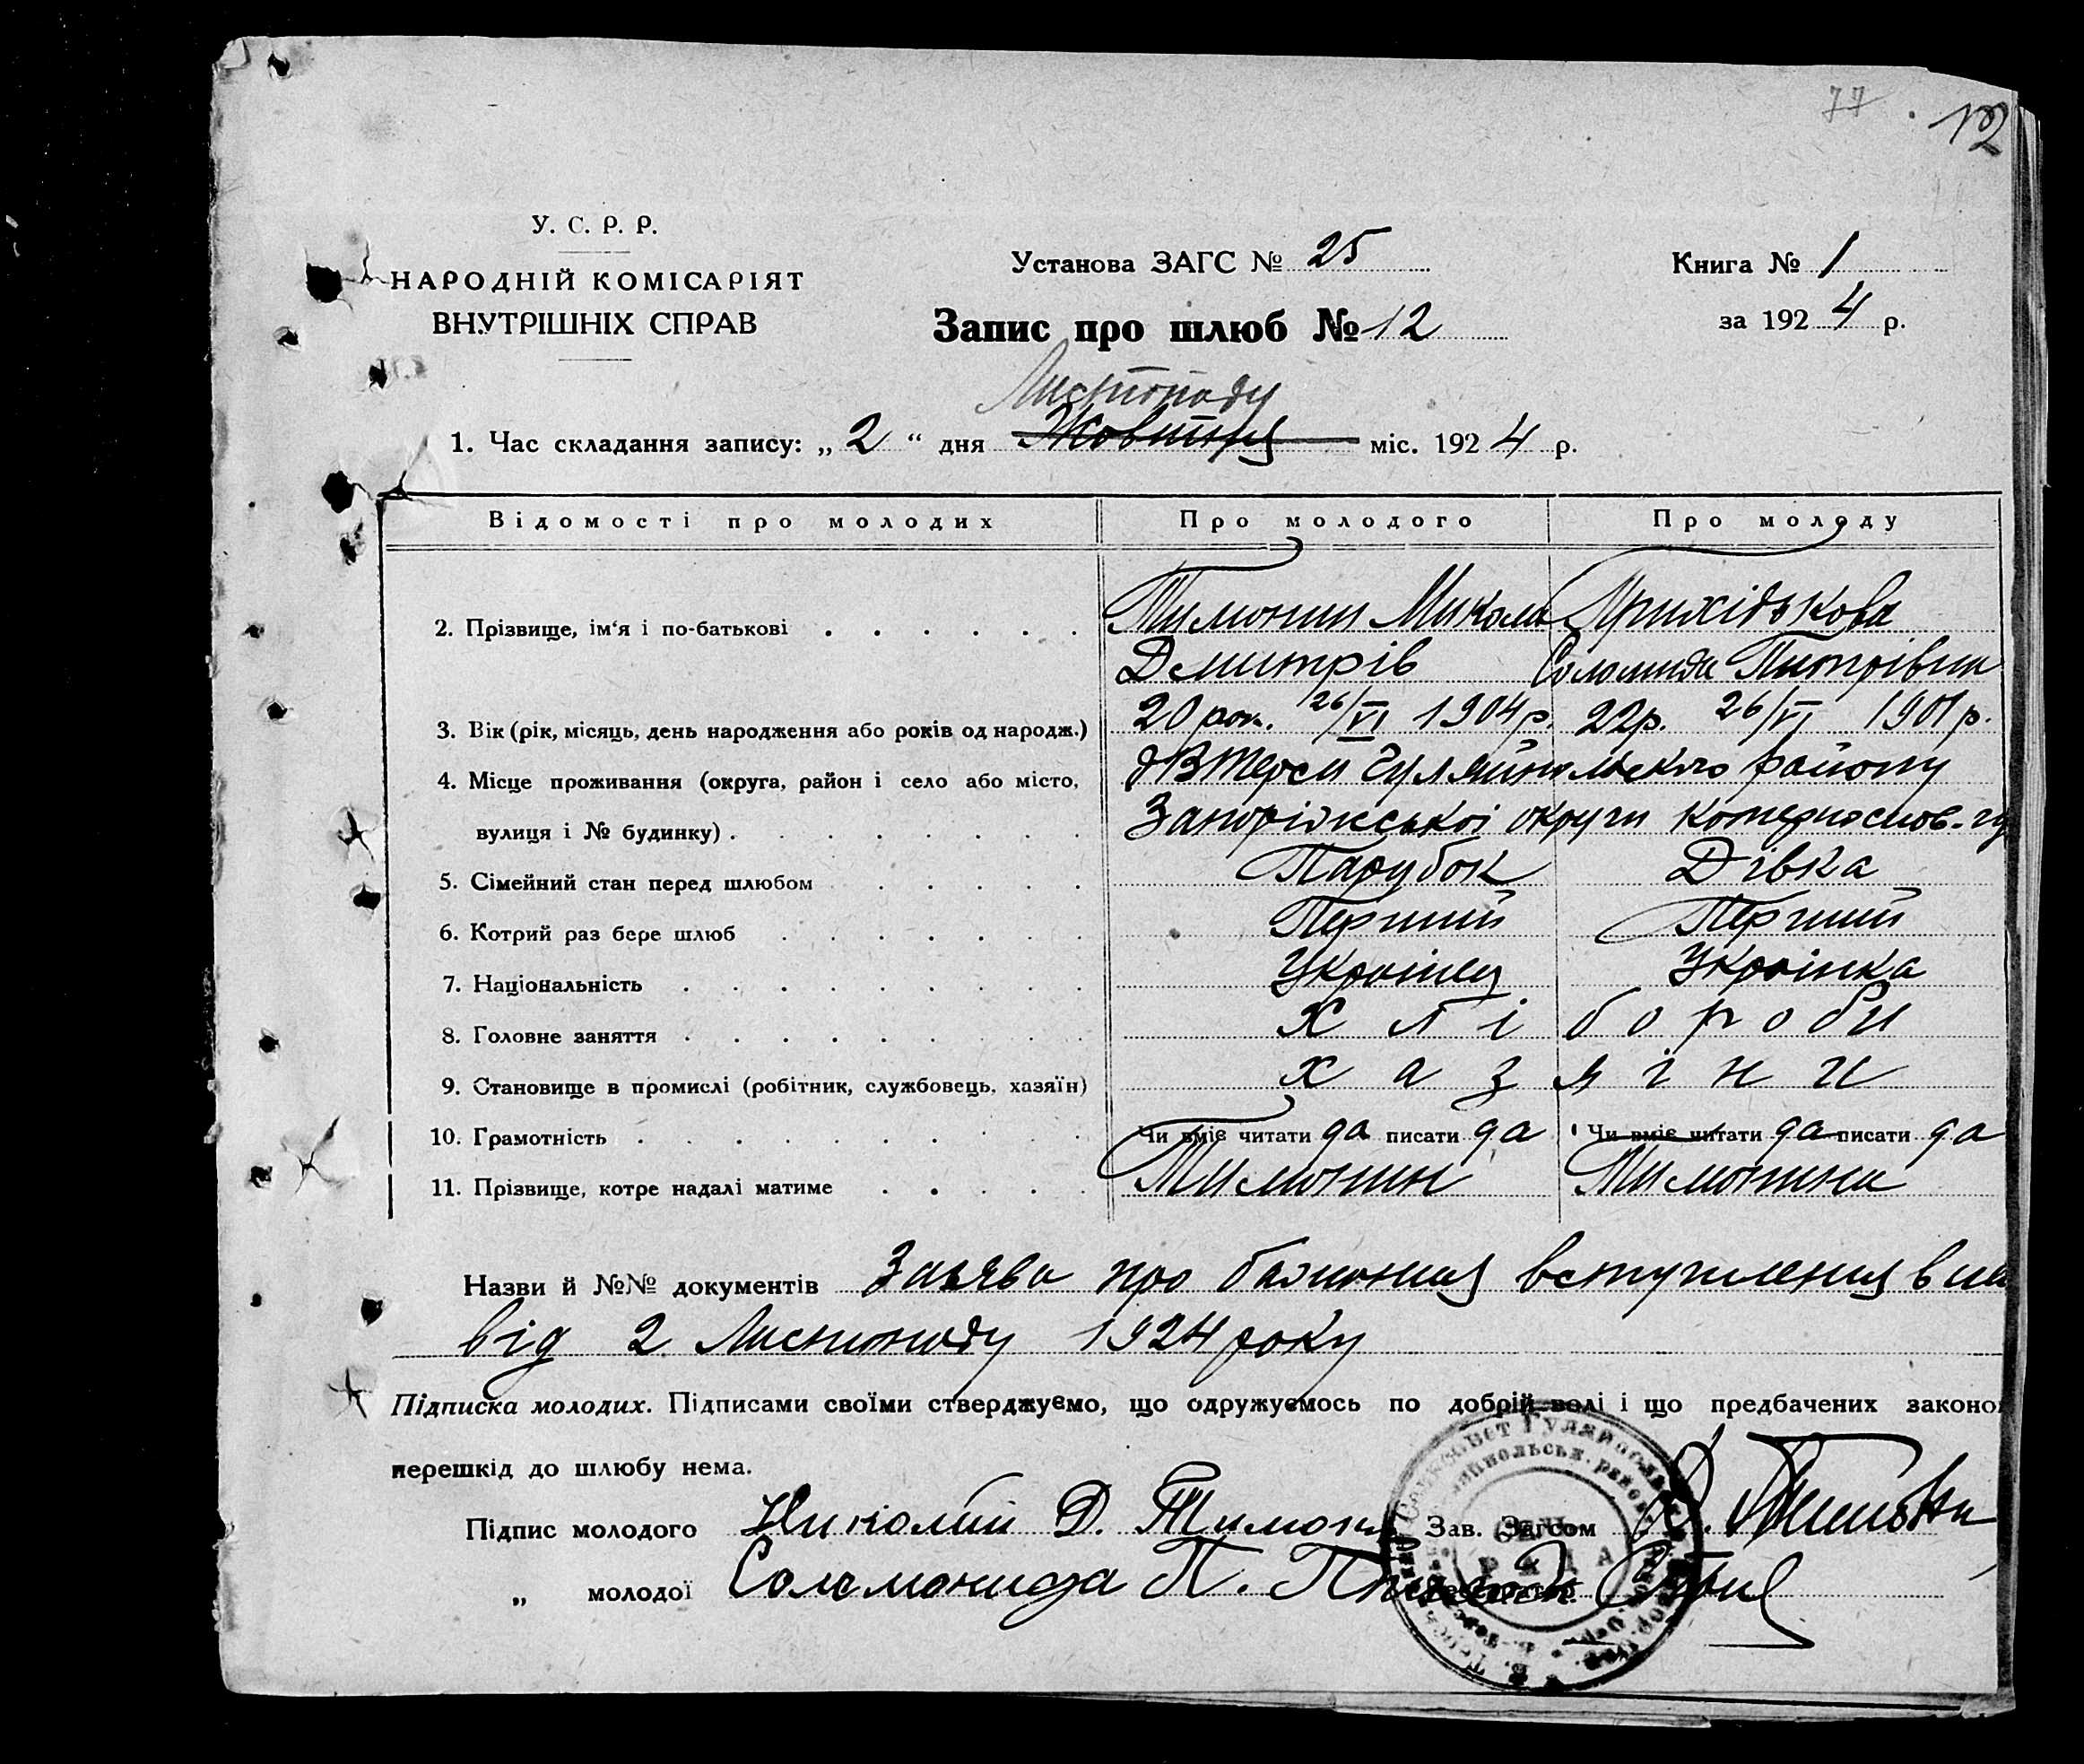 77 12
У. С. Р. Р.
НАРОДНІЙ КОМІСАРІЯТ
ВНУТРІШНІХ СПРАВ
Установа ЗАГС № 25
Книга № 1
Запис про шлюб № 12
за 1924 р.
Листопаду
1. Час складання запису: „ 2 “ дня Жовтня міс. 1924 р.
Відомості про молодих Про молодого Про молоду
2. Прізвище, ім‘я і по-батькові Тимонин Микола Прихідькова
Дмитрів Соломида Питрівна
3. Вік (рік, місяць, день народження або років од народж.) 20 рок. 26/VI 1904 р. 22 р. 26/VI 1901 р.
4. Місце проживання (округа, район і село або місто, Терси Гуляйпольского району
вулиця і № будинку) Запоріжської округи
5. Сімейний стан перед шлюбом Парубок Дівка
6. Котрий раз бере шлюб Перший Перший
7. Національність Українец Українка
8. Головне заняття Хліборо би
9. Становище в промислі (робітник, службовець, хазяїн) хазяіни
10. Грамотність Чи вміє читати да писати да Чи вміє читати да писати да
11. Прізвище, котре надалі матиме Тимонин Тимонина
Назви й №№ документів Заьява про бажиния вступления в
від 2 Листопаду 1924 року
Підписка молодих. Підписами своїми стверджуємо, що одружуємось по добрій волі і що предбачених законо
перешкід до шлюбу нема.
Підпис молодого Николай Д. Тимон Зав. Загсом
„ молодої Соломонида П.